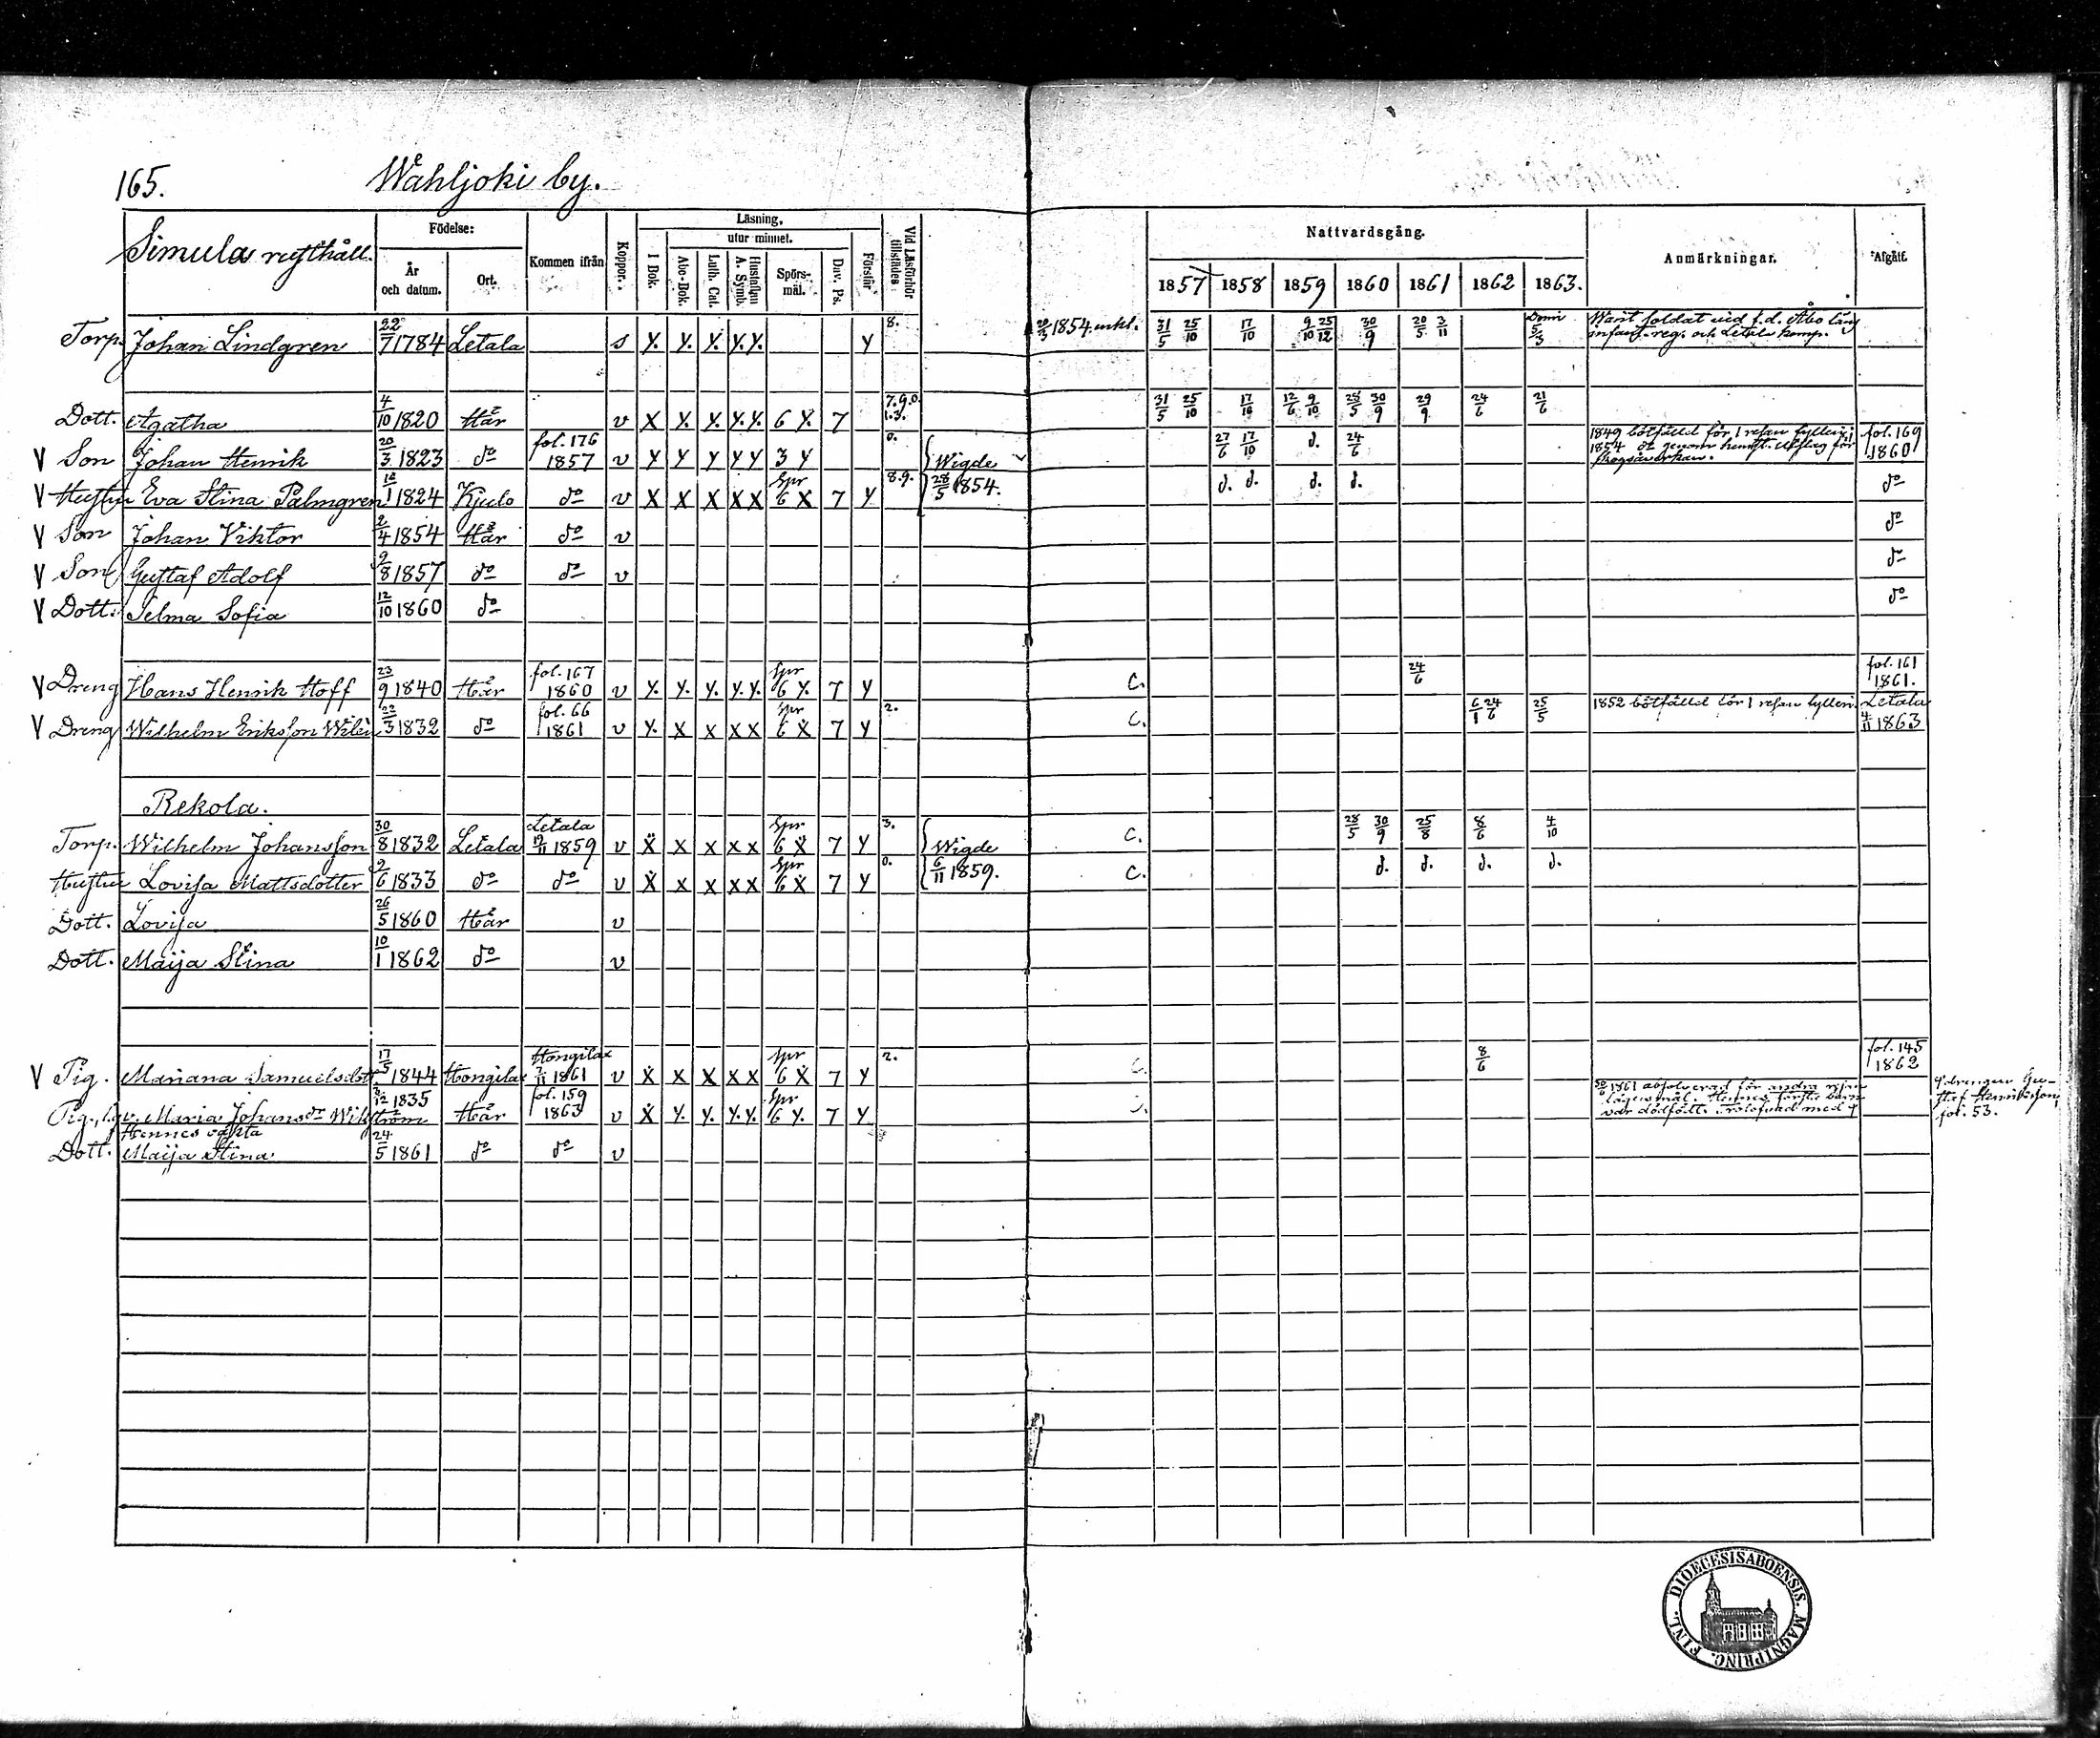 165. Wåhljoki by.
Simula rusthåll. Födelse: Kommen ifrån Koppor. Läsning, Vid Läsförhör tillstädes Nattvardsgång. Anmärkningar. Afgått.
År och datum. Ort. I Bok. utur minnet. Förstår
Abc-Bok. Luth. Cat. Hustaflan A. Symb. Spörsmål. Dav. Ps. 1857 1858 1859 1860 1861 1862 1863.
Torp. Johan Lindgren 22/7 1784 Letala s y. y. y. y. y. y 8. 20/3 1854 enkl. 31/5 25/10 17/10 9/10 25/12 30/9 20/5 3/11 5/3 Warit soldat vid f.d. Åbo läns
infant. reg. och Letala komp.
Dott. Agatha 4/10 1820 Här v x y. y. y. y. 6 y. 7 7.9.0.
1.3. 31/5 25/10 17/10 12/6 9/10 25/5 30/9 29/9 24/6 21/6
V Son Johan Henrik 20/3 1823 do fol. 176
1857 v y y y y y 3 y 0. Wigde 27/6 17/10 d. 24/6 1849 bötfälld för 1 resan fylleri;
1854 för
skogsåverkan. fol. 169
1860
V Hustru Eva Stina Palmgren 1824 Kjulo do v x x x x x Spr
6 x 7 y 8.9. 28/5 1854. d. d. d. d. do
V Son Johan Viktor 2/4 1854 Här do v do
V Son Gustaf Adolf 9/8 1857 do do v do
V Dott. Selma Sofia 12/10 1860 do do
V Dreng Hans Henrik Hoff 23/9 1840 Här fol. 167
1860 v y. y. y. y. y. Spr
6 y. 7 y C. 24/6 fol. 161
1861.
V Dreng Wilhelm Eriksson Wilén 22/3 1832 do fol. 66
1861 v y. x x x x Spr
6 x 7 y 2. C. 6/1 24/6 25/5 1852 bötfälld för 1 resan fylleri. Letala
4/11 1863
Rekola.
Torp. Wilhelm Johansson 30/8 1832 Letala Letala
12/11 1859 v x x x x x Spr
6 x 7 y 3. Wigde C. 28/5 30/9 25/8 8/6 4/10
Hustru Lovisa Mattsdotter 9/6 1833 do do v x x x x x Spr
6 x 7 y 0. 6/11 1859. C. d. d. d. d.
Dott. Lovisa 26/5 1860 Här v
Dott. Maija Stina 10/1 1862 do v
V Pig. Mariana Samuelsdott. 17/5 1844 Hongilax Hongilax
7/11 1861 v x x x x x Spr
6 x 7 y 2. C. 8/6 fol. 145
1862
Pig., Maria Johansdr Wikström 1835 Här fol. 159
1863 v x y. y. y. y. Spr
6 y. 7 y 1861 absolverad för andra resan
lägersmål. Hennes första barn
var dödfödt. Trolofvad med † † drengen Gu-
staf Henriksson,
fol. 53.
Hennes oäkta
Dott. Maija Stina 24/5 1861 do do v
FINL. DIOECESIS ABOENSIS. MAGNI PRINC.